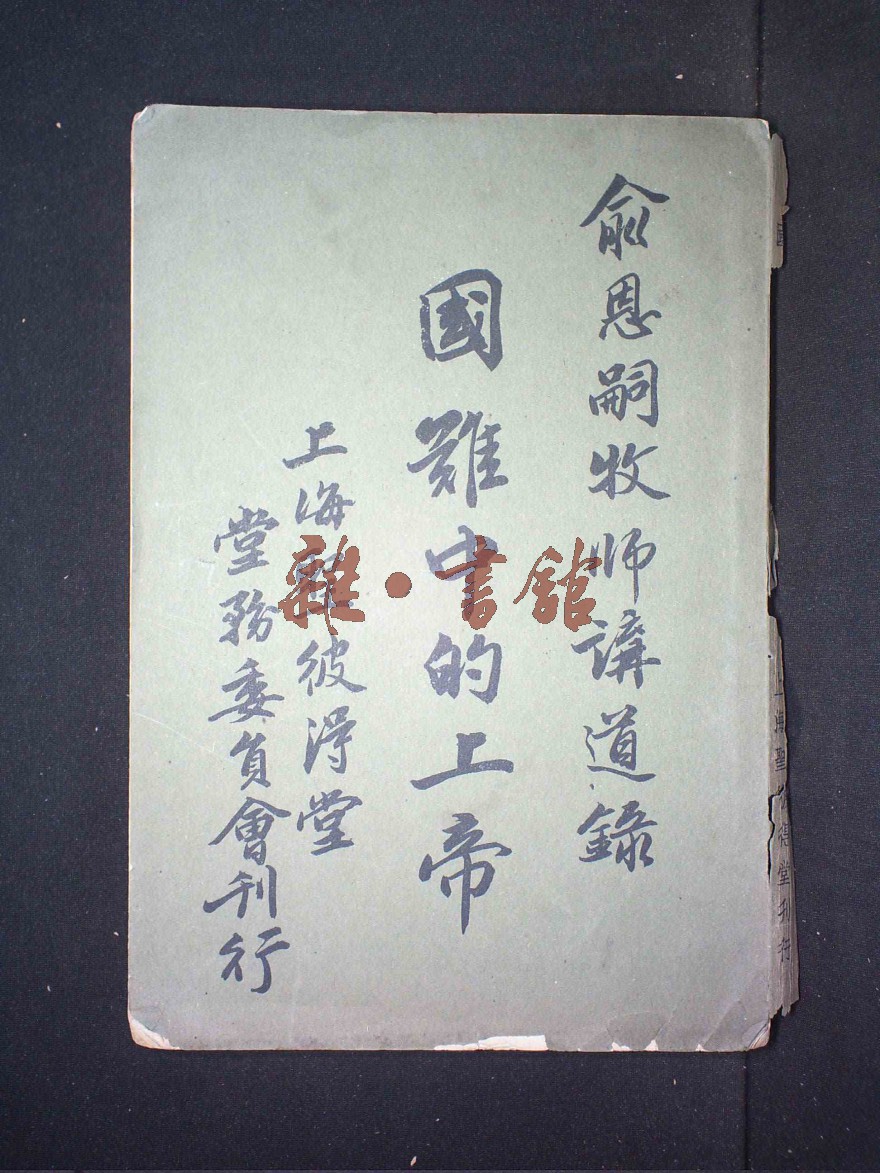 俞恩嗣牧师講道錄
國難中的上帝
上海聖彼得堂
堂務委員會刊行
雜·書館
上海聖彼得堂刊行